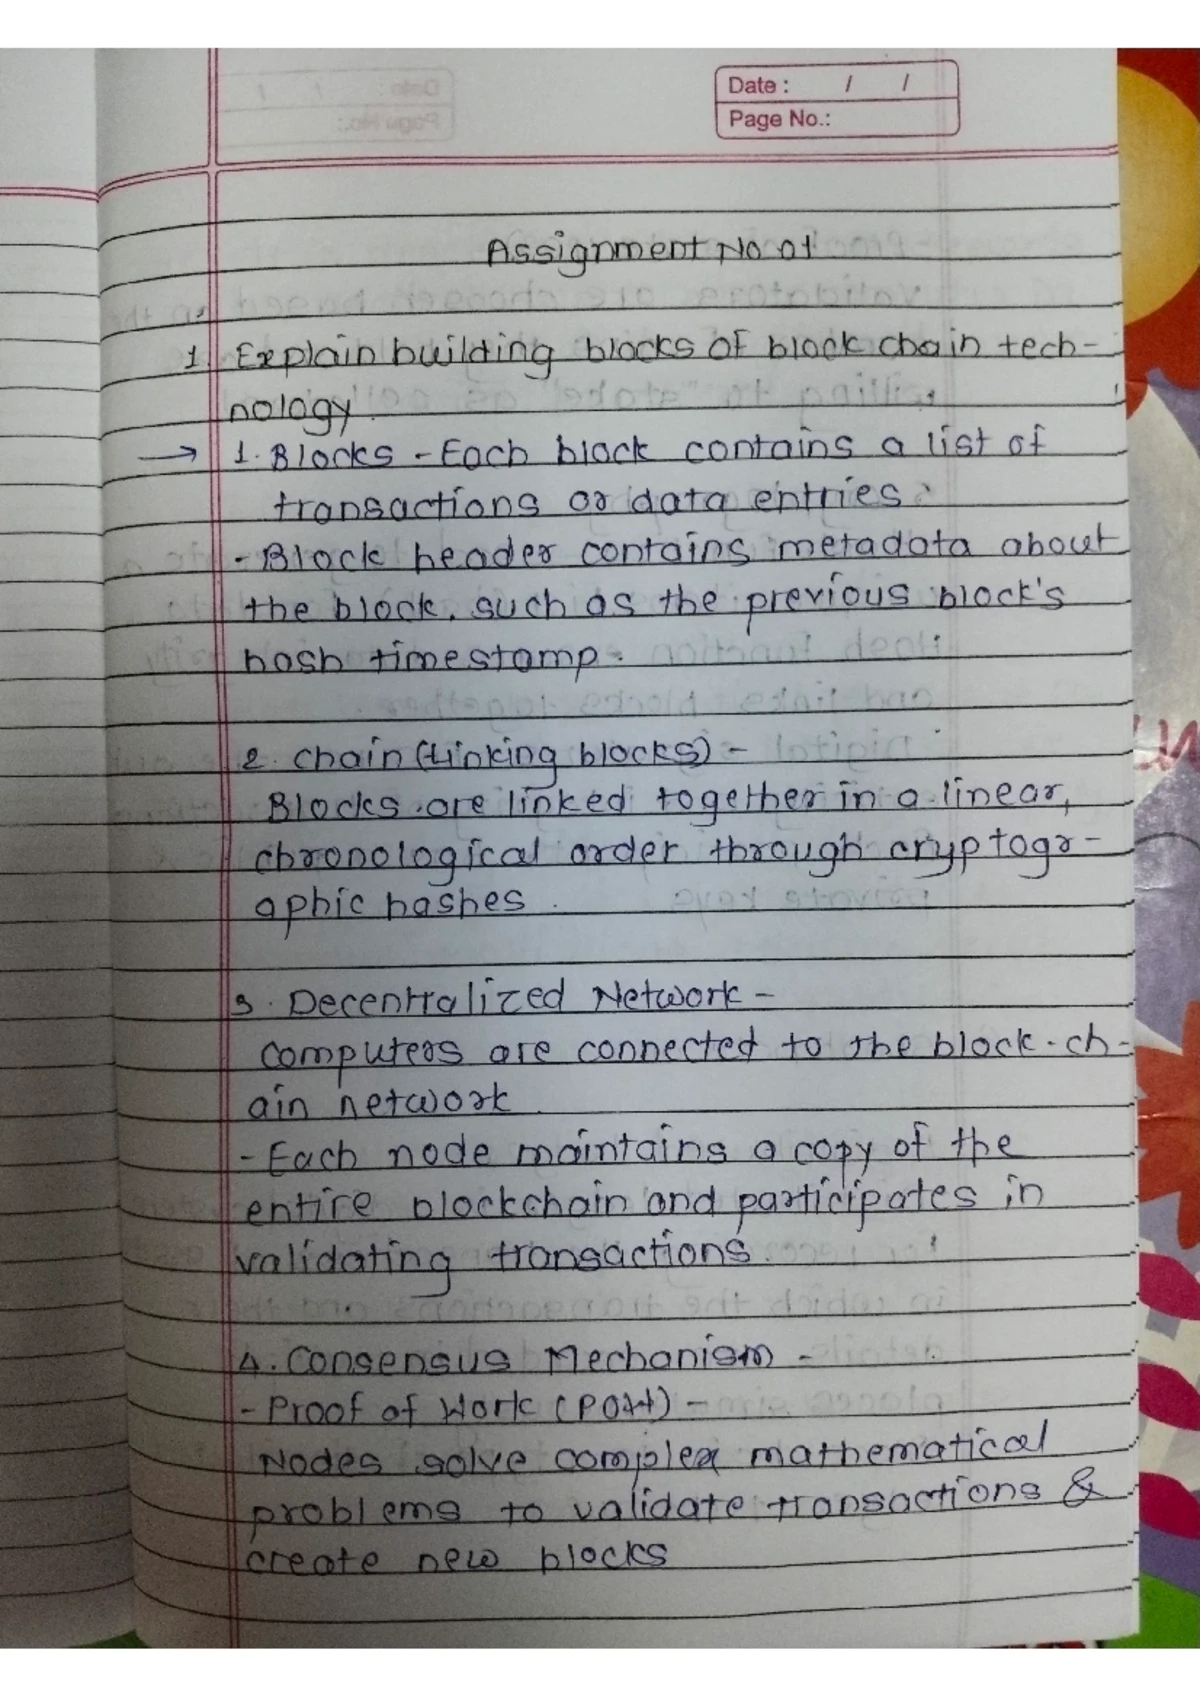 Date : / /
Page No.:
Assignment No 01
1. Explain building blocks of block chain tech-
nology.
→ 1. Blocks - Each block contains a list of
transactions or data entries.
- Block header contains metadata about
the block. such as the previous block's
hash timestamp.
2. Chain (Linking blocks) -
Blocks are linked together in a linear,
chronological order through cryptogr-
aphic hashes.
3. Decentralized Network -
Computers are connected to the block-ch-
ain network
- Each node maintains a copy of the
entire blockchain and participates in
validating transactions.
4. Consensus Mechanism -
- Proof of Work (POW) -
Nodes solve complex mathematical
problems to validate transactions &
create new blocks